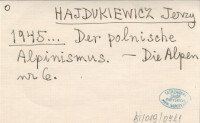 O
HAJDUKIEWICZ Jerzy
1945... Der polnische
Alpinismus. – Die Alpen
nr 6.